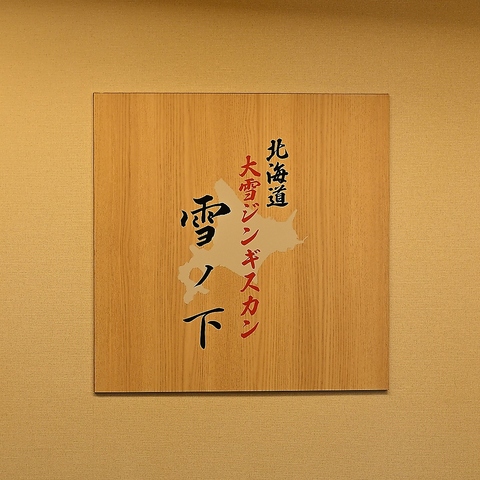 北海道
大雪ジンギスカン
雪ノ下